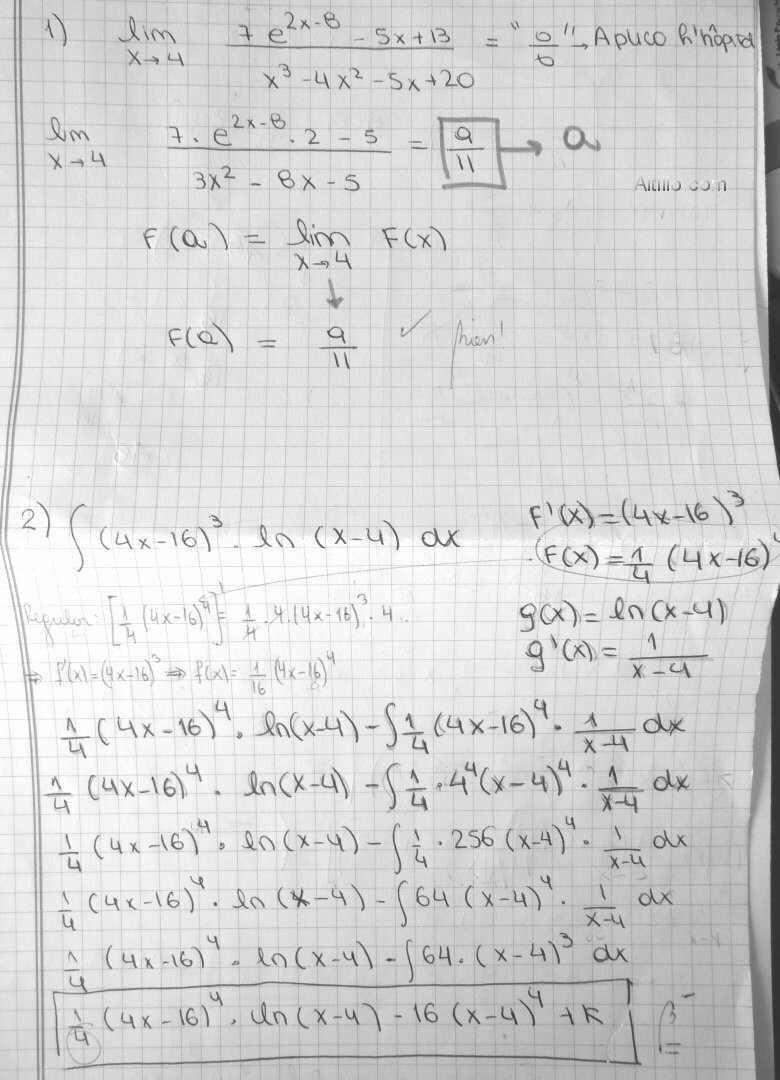 1) lim x→4 (7e^(2x-8) - 5x + 13)/(x³ - 4x² - 5x + 20) = "0/0" → Aplico L'Hôpital
lim x→4 (7 · e^(2x-8) · 2 - 5)/(3x² - 8x - 5) = 9/11 → a
F(a) = lim x→4 F(x)
↓
F(a) = 9/11 ✓ bien!
2) ∫ (4x-16)³ · ln (x-4) dx
F'(x) = (4x-16)³
F(x) = 1/4 (4x-16)⁴
g(x) = ln(x-4)
g'(x) = 1/(x-4)
Regular: [1/4 (4x-16)⁴]' = 1/4 · 4 · (4x-16)³ · 4
⇒ f'(x) = (4x-16)³ ⇒ f(x) = 1/16 (4x-16)⁴
1/4 (4x-16)⁴ · ln(x-4) - ∫ 1/4 (4x-16)⁴ · 1/(x-4) dx
1/4 (4x-16)⁴ · ln(x-4) - ∫ 1/4 · 4⁴ (x-4)⁴ · 1/(x-4) dx
1/4 (4x-16)⁴ · ln(x-4) - ∫ 1/4 · 256 (x-4)⁴ · 1/(x-4) dx
1/4 (4x-16)⁴ · ln(x-4) - ∫ 64 (x-4)⁴ · 1/(x-4) dx
1/4 (4x-16)⁴ · ln(x-4) - ∫ 64 · (x-4)³ dx
1/4 (4x-16)⁴ · ln(x-4) - 16 (x-4)⁴ + k